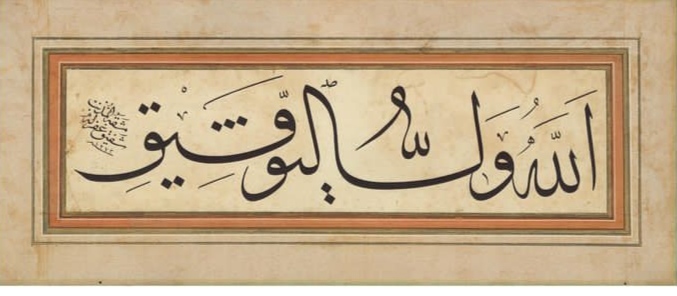 اللّٰهُ وَلِيُّ التَّوْفِيقِ